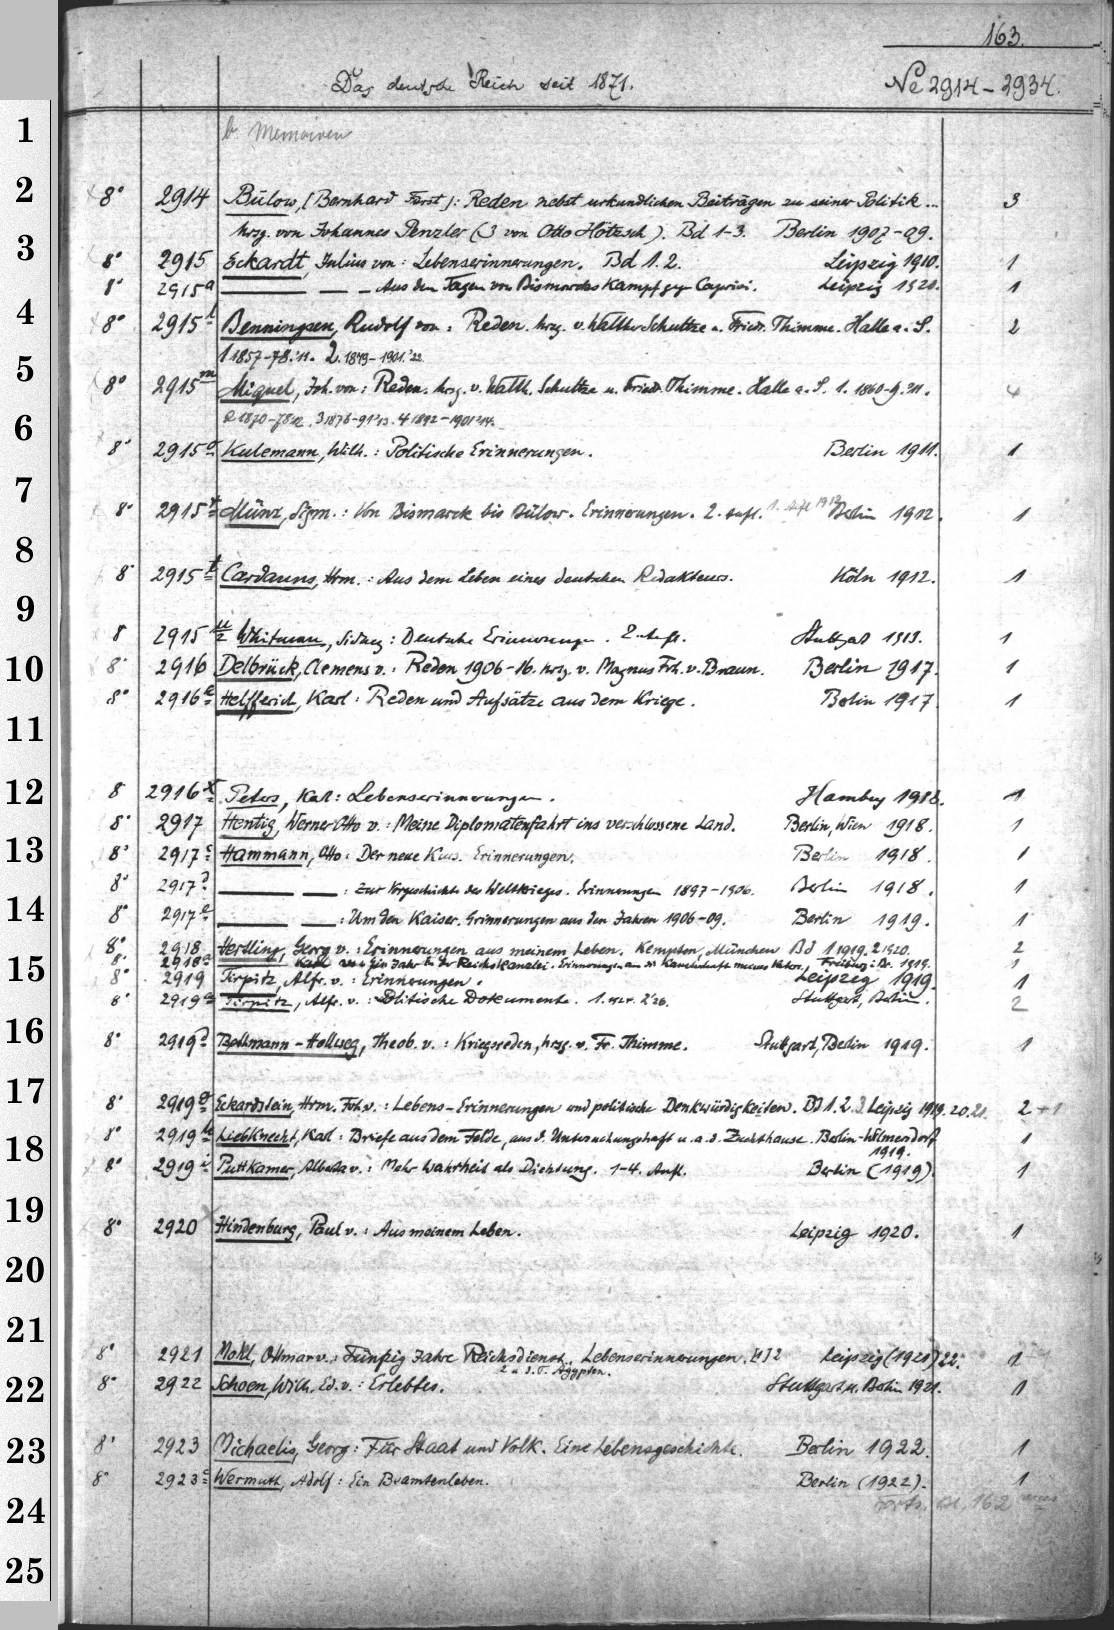 163.
Das deutsche Reich seit 1871.
№ 2914 – 2934.
1
b. Memoiren
2
8° 2914 Bülow, (Bernhard Fürst): Reden nebst urkundlichen Beiträgen zu seiner Politik ... 3
hrsg. von Johannes Penzler (3 von Otto Hötzsch). Bd 1-3. Berlin 1907-09.
3
8° 2915 Eckardt, Julius von: Lebenserinnerungen. Bd 1. 2. Leipzig 1910. 1
8° 2915a — — Aus den Tagen von Bismarcks Kampf geg. Caprivi. Leipzig 1920. 1
4
8° 2915 Benningsen, Rudolf von: Reden. hrsg. v. Walther Schultze u. Friedr. Thimme. Halle a. S. 2
1 1857-78. '11. 2. 1879-1901. '22.
5
8° 2915m Miquel, Joh. von: Reden. hrsg. v. Walth. Schultze u. Friedr. Thimme. Halle a. S. 1. 1860-9. '11. 4
2 1870-78 '12. 3 1878-91 '13. 4 1892-1901 '14.
6
8° 2915 Kulemann, Wilh.: Politische Erinnerungen. Berlin 1911. 1
7
8° 2915r Münz, Sigm.: Von Bismarck bis Bülow. Erinnerungen. 2. Aufl. 1. Aufl 1912 Berlin 1912. 1
8
8° 2915t Cardauns, Hrm.: Aus dem Leben eines deutschen Redakteurs. Köln 1912. 1
9
8 2915 Whitman, Sidney: Deutsche Erinnerungen. 2. Aufl. Stuttgart 1913. 1
10
8° 2916 Delbrück, Clemens v.: Reden 1906-16. hrsg. v. Magnus Frh. v. Braun. Berlin 1917. 1
8° 2916a Helfferich, Karl: Reden und Aufsätze aus dem Kriege. Berlin 1917. 1
11
12
8 2916x Peters, Karl: Lebenserinnerungen. Hamburg 1918. 1
8° 2917 Hentig, Werner Otto v.: Meine Diplomatenfahrt ins verschlossene Land. Berlin, Wien 1918. 1
13
8° 2917c Hammann, Otto: Der neue Kurs. Erinnerungen. Berlin 1918. 1
8° 2917d — —: Zur Vorgeschichte des Weltkrieges. Erinnerungen 1897-1906. Berlin 1918. 1
14
8° 2917e — —: Um den Kaiser. Erinnerungen aus den Jahren 1906-09. Berlin 1919. 1
8° 2918 Hertling, Georg v.: Erinnerungen aus meinem Leben. Kempten, München Bd 1. 1919. 2. 1920. 2
8° 2918a — Karl v.: Ein Jahr in der Reichskanzlei. Erinnerungen an die Kanzlerschaft meines Vaters. Freiburg i. Br. 1919. 1
15
8° 2919 Tirpitz, Alfr. v.: Erinnerungen. Leipzig 1919. 1
8° 2919a Tirpitz, Alfr. v.: Politische Dokumente. 1. 2. '26. Stuttgart, Berlin. 2
16
8° 2919d Bethmann-Hollweg, Theob. v.: Kriegsreden, hrsg. v. Fr. Thimme. Stuttgart, Berlin 1919. 1
17
8° 2919g Eckardstein, Hrm. Frh. v.: Lebens-Erinnerungen und politische Denkwürdigkeiten. Bd 1. 2. 3. Leipzig 1919. 20. 21. 2+1
8° 2919h Liebknecht, Karl: Briefe aus dem Felde, aus d. Untersuchungshaft u. a. d. Zuchthause. Berlin-Wilmersdorf 1
1919.
18
8° 2919i Puttkamer, Alberta v.: Mehr Wahrheit als Dichtung. 1-4. Aufl. Berlin (1919). 1
19
8° 2920 Hindenburg, Paul v.: Aus meinem Leben. Leipzig 1920. 1
20
21
8° 2921 Mohl, Ottmar v.: Fünfzig Jahre Reichsdienst. Lebenserinnerungen. Leipzig (1921) 22. 1
Ägypten.
22
8° 2922 Schoen, Wilh. Ed. v.: Erlebtes. Stuttgart u. Berlin 1921. 1
23
8° 2923 Michaelis, Georg: Für Staat und Volk. Eine Lebensgeschichte. Berlin 1922. 1
8° 2923c Wermuth, Adolf: Ein Beamtenleben. Berlin (1922). 1
24
Forts. Bl. 162
25